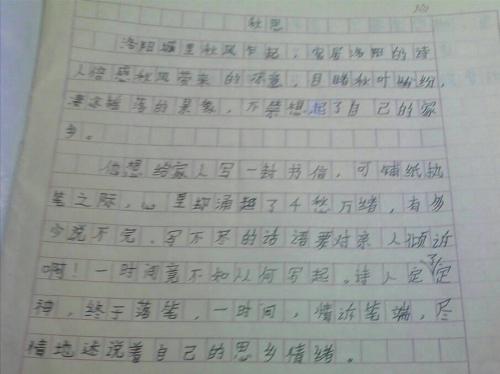 秋思
洛阳城里秋风乍起，客居洛阳的诗
人倍感秋风带来的凉意，目睹秋叶纷纷，
落的景象，不禁想起了自己的家
乡。
他想给家人写一封书信，可铺纸执
笔之际，心里却涌起了千愁万绪，有多
少说不完、写不尽的话语要对亲人倾诉
啊！一时间竟不知从何写起。诗人定了定
神，终于落笔，一时间，情诉笔端，尽
情地述说着自己的思乡情绪。